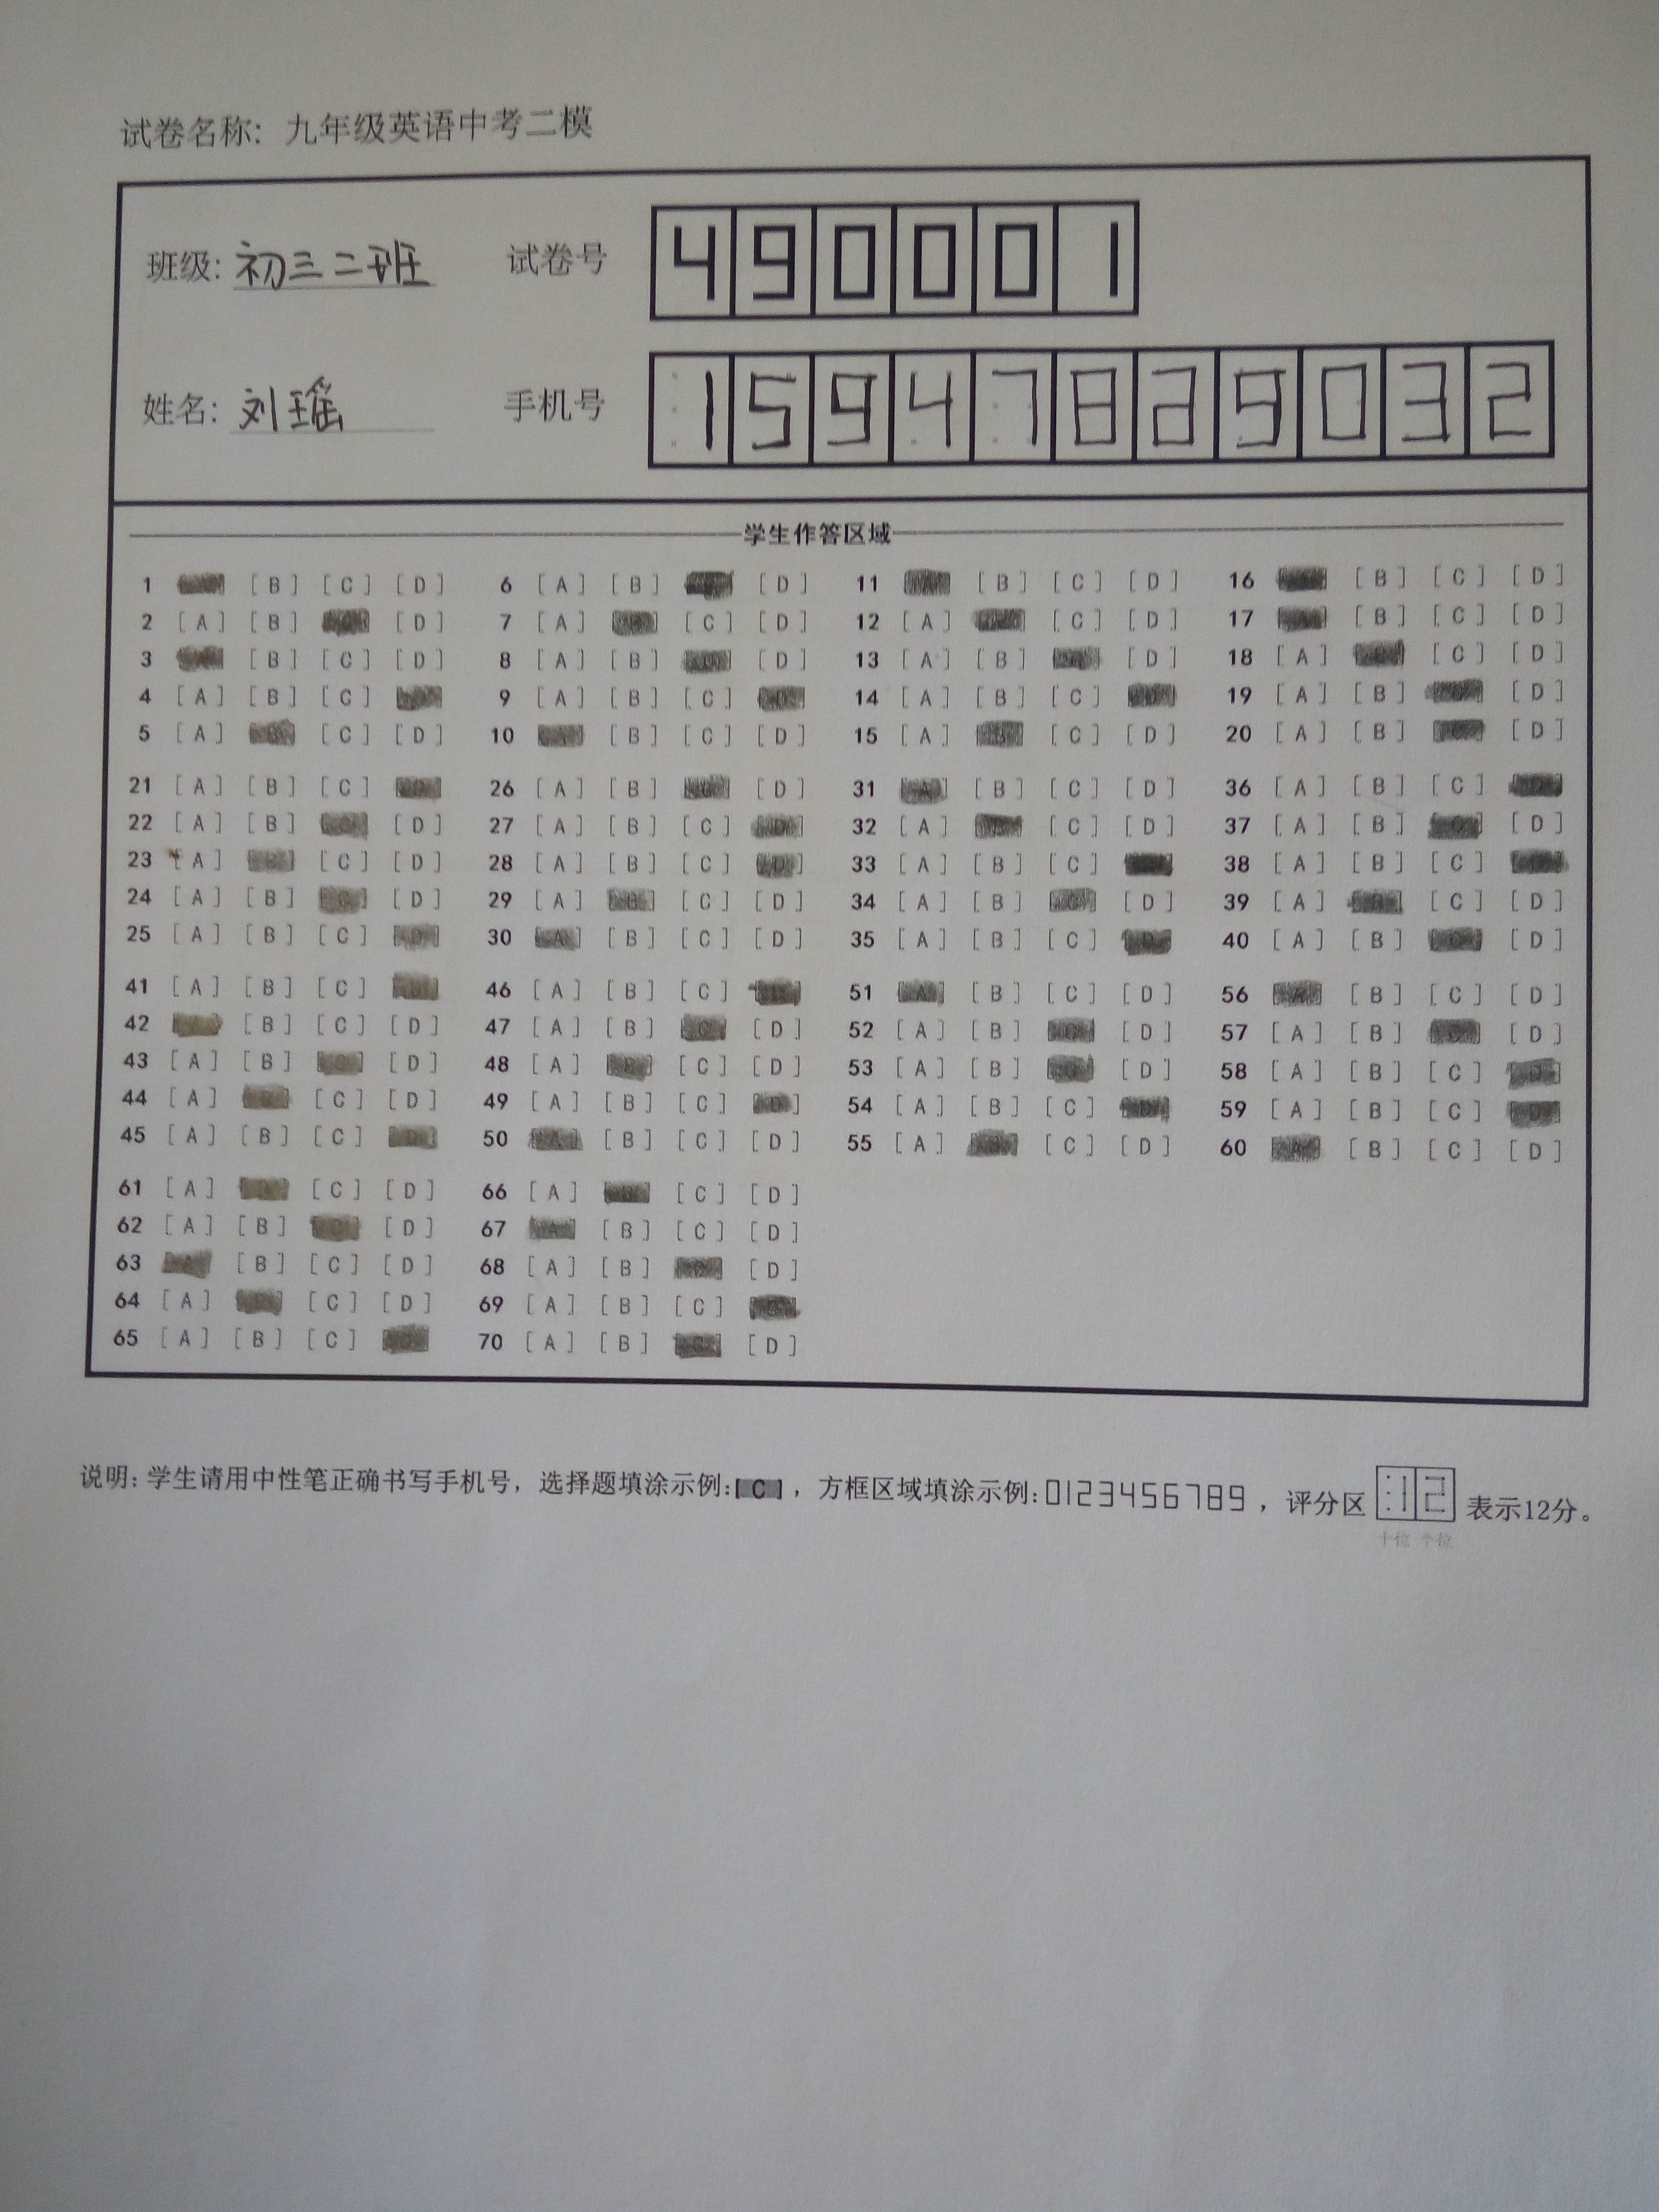 试卷名称: 九年级英语中考二模
班级: 初三二班 试卷号 490001
姓名: 刘瑶 手机号 15947829032
学生作答区域
1 [A] [B] [C] [D] 6 [A] [B] [C] [D] 11 [A] [B] [C] [D] 16 [A] [B] [C] [D]
2 [A] [B] [C] [D] 7 [A] [B] [C] [D] 12 [A] [B] [C] [D] 17 [A] [B] [C] [D]
3 [A] [B] [C] [D] 8 [A] [B] [C] [D] 13 [A] [B] [C] [D] 18 [A] [B] [C] [D]
4 [A] [B] [C] [D] 9 [A] [B] [C] [D] 14 [A] [B] [C] [D] 19 [A] [B] [C] [D]
5 [A] [B] [C] [D] 10 [A] [B] [C] [D] 15 [A] [B] [C] [D] 20 [A] [B] [C] [D]
21 [A] [B] [C] [D] 26 [A] [B] [C] [D] 31 [A] [B] [C] [D] 36 [A] [B] [C] [D]
22 [A] [B] [C] [D] 27 [A] [B] [C] [D] 32 [A] [B] [C] [D] 37 [A] [B] [C] [D]
23 [A] [B] [C] [D] 28 [A] [B] [C] [D] 33 [A] [B] [C] [D] 38 [A] [B] [C] [D]
24 [A] [B] [C] [D] 29 [A] [B] [C] [D] 34 [A] [B] [C] [D] 39 [A] [B] [C] [D]
25 [A] [B] [C] [D] 30 [A] [B] [C] [D] 35 [A] [B] [C] [D] 40 [A] [B] [C] [D]
41 [A] [B] [C] [D] 46 [A] [B] [C] [D] 51 [A] [B] [C] [D] 56 [A] [B] [C] [D]
42 [A] [B] [C] [D] 47 [A] [B] [C] [D] 52 [A] [B] [C] [D] 57 [A] [B] [C] [D]
43 [A] [B] [C] [D] 48 [A] [B] [C] [D] 53 [A] [B] [C] [D] 58 [A] [B] [C] [D]
44 [A] [B] [C] [D] 49 [A] [B] [C] [D] 54 [A] [B] [C] [D] 59 [A] [B] [C] [D]
45 [A] [B] [C] [D] 50 [A] [B] [C] [D] 55 [A] [B] [C] [D] 60 [A] [B] [C] [D]
61 [A] [B] [C] [D] 66 [A] [B] [C] [D]
62 [A] [B] [C] [D] 67 [A] [B] [C] [D]
63 [A] [B] [C] [D] 68 [A] [B] [C] [D]
64 [A] [B] [C] [D] 69 [A] [B] [C] [D]
65 [A] [B] [C] [D] 70 [A] [B] [C] [D]
说明: 学生请用中性笔正确书写手机号，选择题填涂示例:[C]，方框区域填涂示例:0123456789，评分区 12 表示12分。
十位 个位